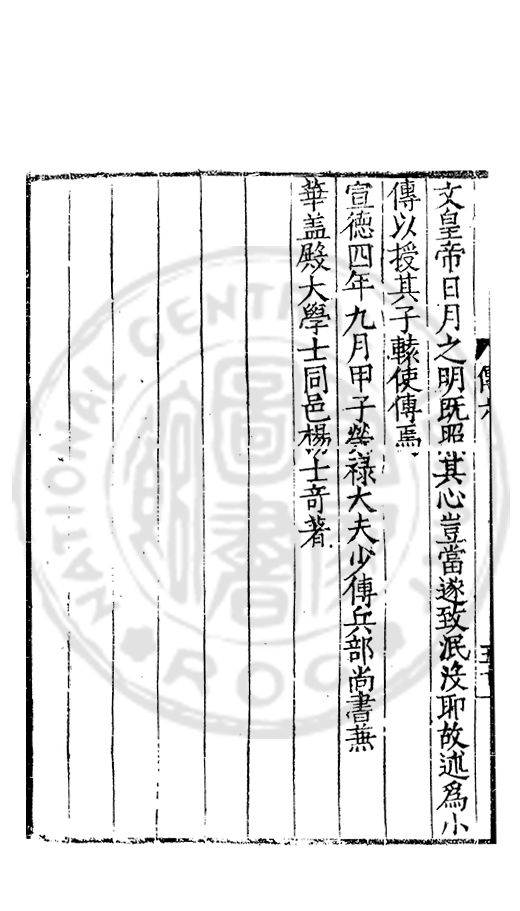 文皇帝日月之明既昭其心豈當遂致泯没耶故述為小
傳以授其子轅使傳焉
宣德四年九月甲子榮禄大夫少傅兵部尚書兼
華盖殿大學士同邑楊士竒著
傳六
NATIONAL CENTRAL
圖書
ROC